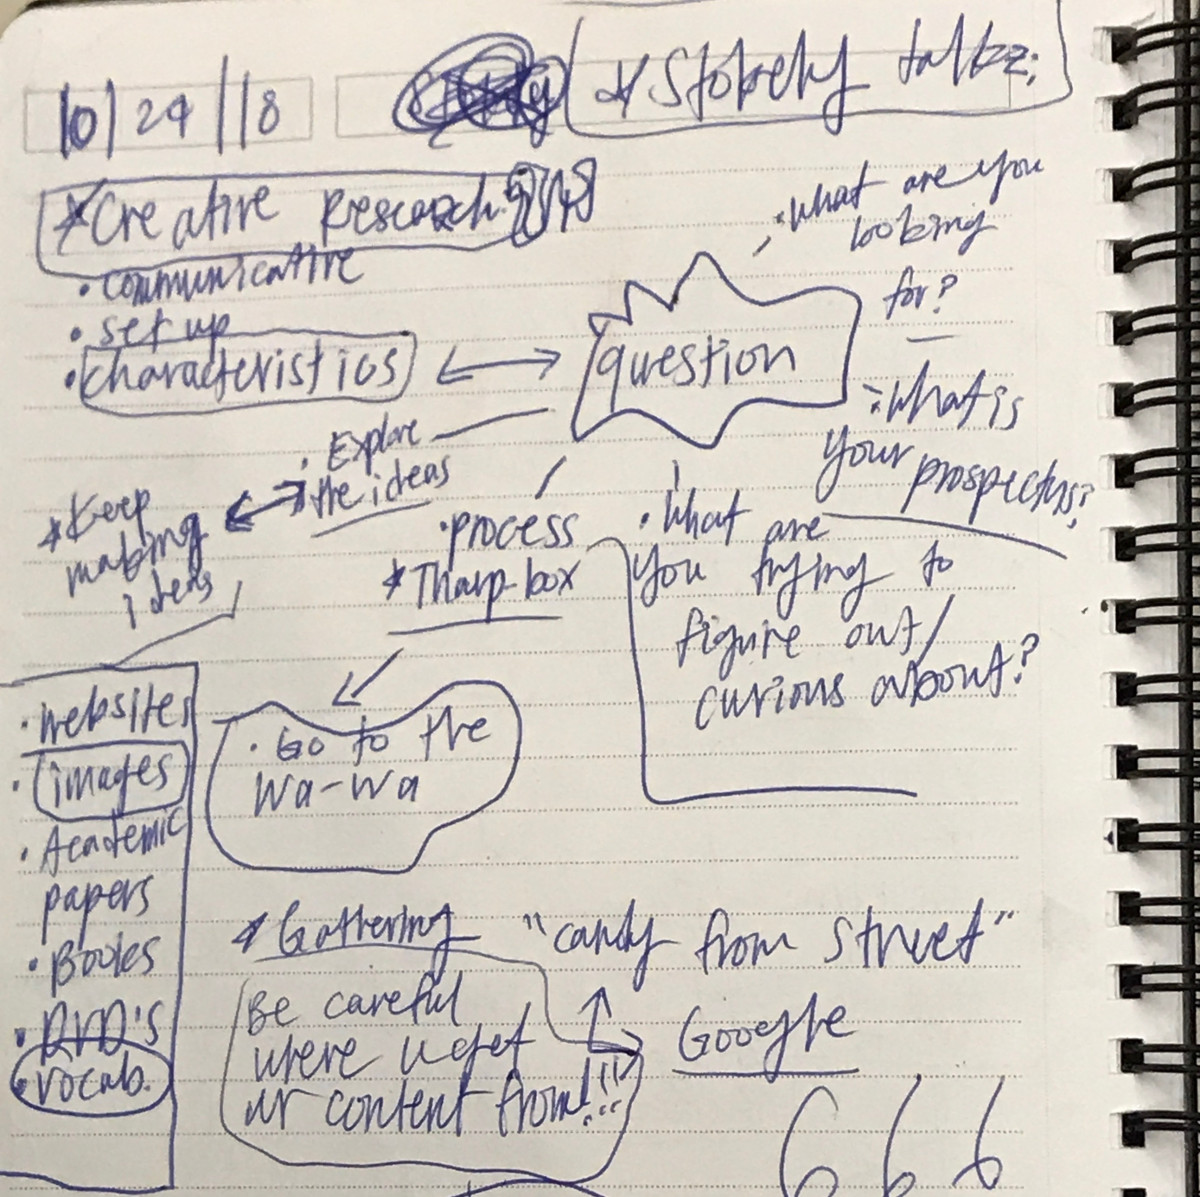 10/24/18
*Stokely talkz:
*Creative Research
• communicative
• set up
• characteristics
question
• what are you
looking
for?
• what is
your prospectus?
• Explore
the ideas
*Keep
making
ideas
• process
*Tharp-box
• what are
you trying to
figure out/
curious about?
• websites
• images
• Academic
papers
• Books
• DVD's
• vocab.
• Go to the
wa-wa
*Gathering
"candy from street"
Be careful
where u get
ur content from!!!
Google
666